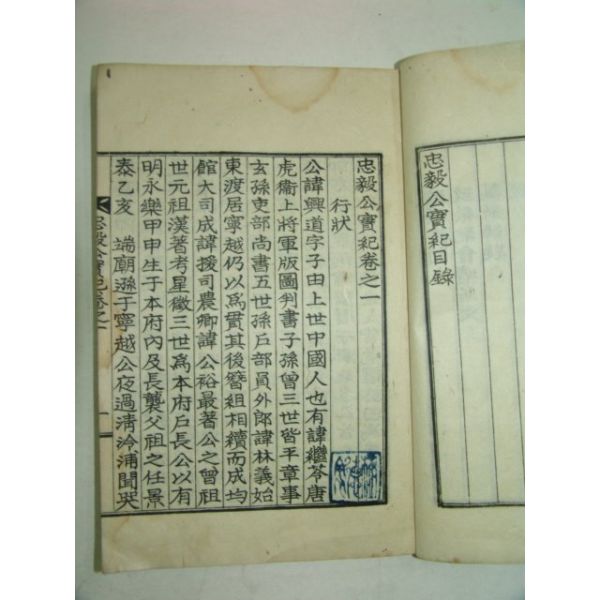 忠毅公實紀目錄
忠毅公實紀卷之一
行狀
公諱興道字子由上世中國人也有諱繼苓唐
虎衛上將軍版圖判書子孫曾三世皆平章事
玄孫吏部尚書五世孫戶部員外郎諱林義始
東渡居寧越仍以爲貫其後簪組相續而成均
館大司成諱援司農卿諱公裕最著公之曾祖
世元祖漢著考星徽三世爲本府戶長公以有
明永樂甲申生于本府內及長襲父祖之任景
泰乙亥　端廟遜于寧越公夜過清泠浦聞哭
忠毅公實紀卷之一
一